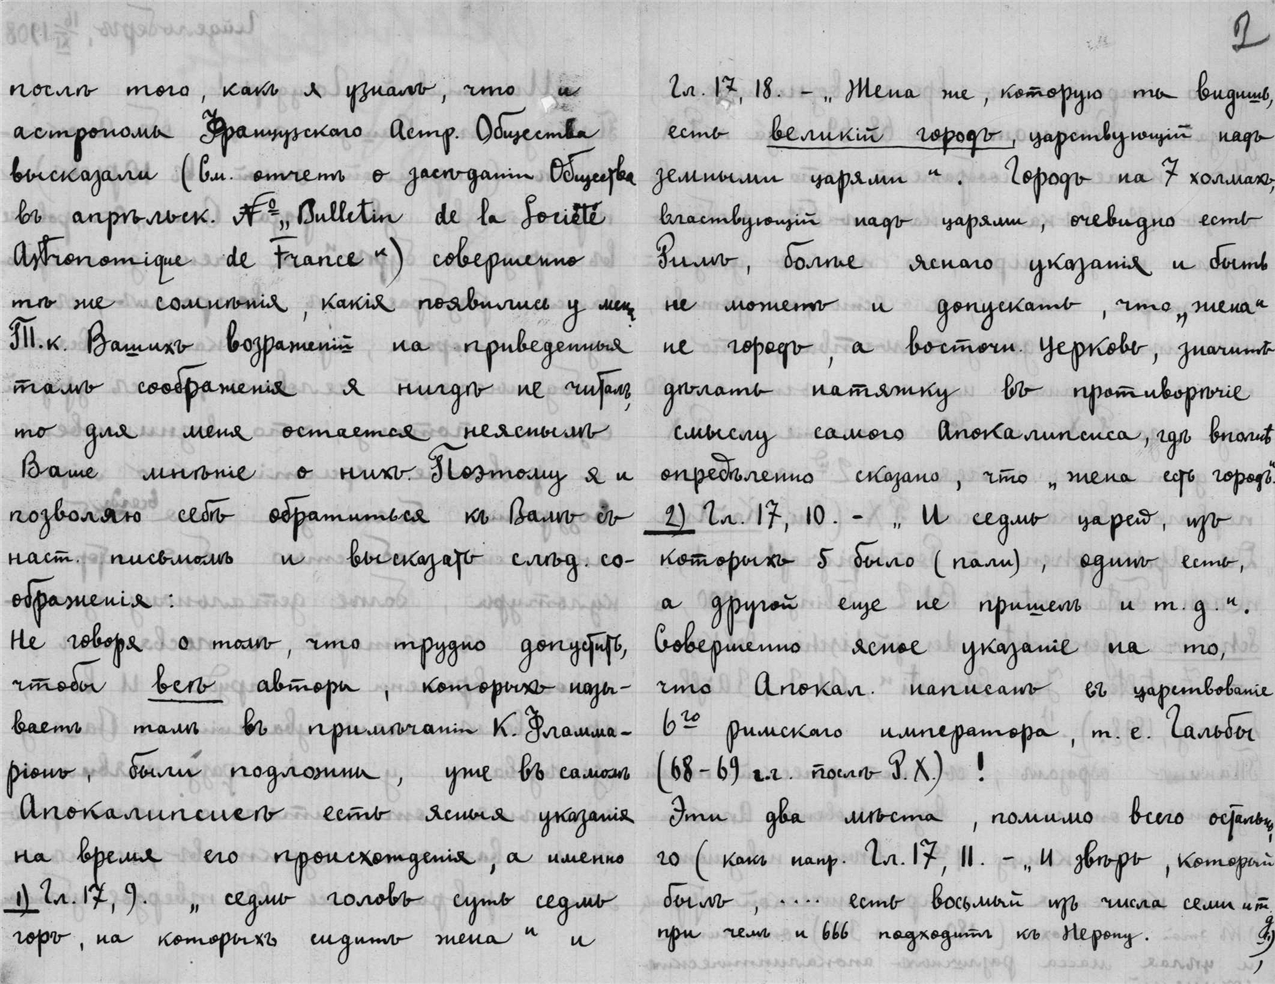 2
послѣ того, какъ я узналъ, что и
астрономы Французскаго Астр. Общества
высказали (См. отчетъ о засѣданіи Общества
въ апрѣльск. № „Bulletin de la Société
Astronomique de France“) совершенно
тѣ же сомнѣнія, какія появились у меня
Т.к. Вашихъ возраженій на приведенныя
тамъ соображенія я нигдѣ не читалъ,
то для меня остается неяснымъ
Ваше мнѣніе о нихъ. Поэтому я и
позволяю себѣ обратиться къ Вамъ съ
наст. письмомъ и высказать слѣд. со-
ображенія:
Не говоря о томъ, что трудно допустить,
чтобы всѣ авторы, которыхъ назы-
ваетъ тамъ въ примѣчаніи К. Фламма-
ріонъ, были подложны, уже въ самомъ
Апокалипсисѣ есть ясныя указанія
на время его происхожденія, а именно
1) Гл. 17, 9. „седмь головъ суть седмь
горъ, на которыхъ сидитъ жена“ и
Гл. 17, 18. – „Жена же, которую ты видишь,
есть великій городъ, царствующій надъ
земными царями“. Городъ на 7 холмахъ,
властвующій надъ царями, очевидно есть
Римъ, болѣе яснаго указанія и быть
не можетъ и допускать, что „жена“
не городъ, а восточн. церковь, значитъ
дѣлать натяжку въ противорѣчіе
смыслу самого Апокалипсиса, гдѣ вполнѣ
опредѣленно сказано, что „жена есть городъ“.
2) Гл. 17, 10. – „И седмь царей, изъ
которыхъ 5 было (пали), одинъ есть,
а другой еще не пришелъ и т.д.“.
Совершенно ясное указаніе на то,
что Апокал. написанъ въ царствованіе
6го римскаго императора, т.е. Гальбы
(68–69 г.г. послѣ Р.Х.) !
Эти два мѣста, помимо всего остально-
го (какъ напр. Гл. 17, 11. – „И звѣрь, который
былъ, .... есть восьмый изъ числа семи и т.д.)
при чемъ и 666 подходитъ къ Нерону.